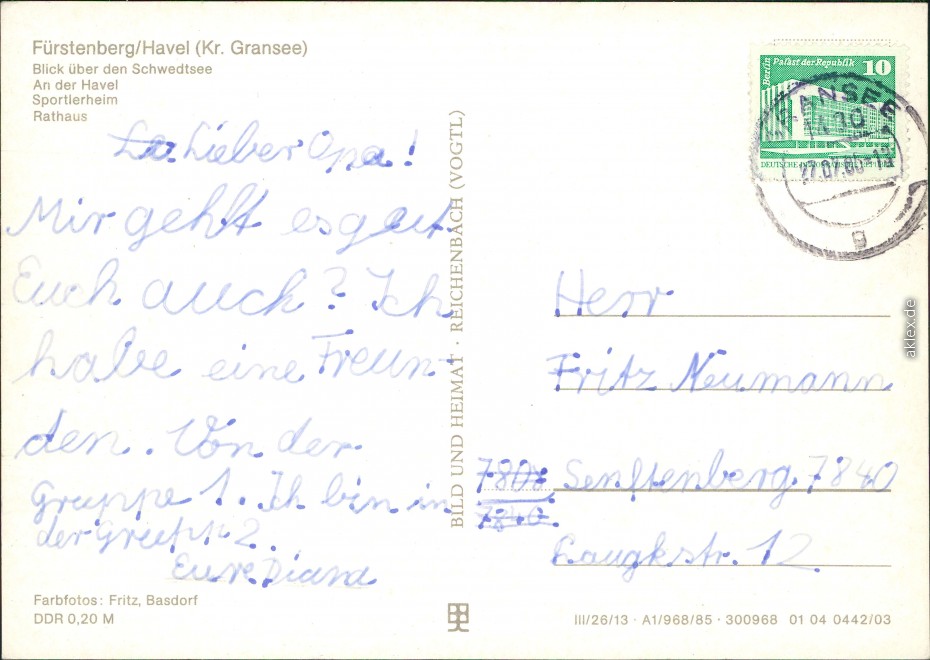 Fürstenberg/Havel (Kr. Gransee)
Blick über den Schwedtsee
An der Havel
Sportlerheim
Rathaus
Lieber Opa!
Mir gehlt es gut
Euch auch? Ich
habe eine Freun-
den. Von der
Gruppe 1. Ich bin in
der Grupp 2.
Eure Diana
Farbfotos: Fritz, Basdorf
DDR 0,20 M
BILD UND HEIMAT · REICHENBACH (VOGTL)
Berlin Palast der Republik 10
GRANSEE
27.07.
g
Herr
Fritz Neumann
Senftenberg 7840
Laugkstr. 12
III/26/13 · A1/968/85 · 300968 01 04 0442/03
aklex.de